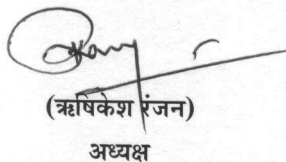 (ऋषिकेश रंजन)
अध्यक्ष